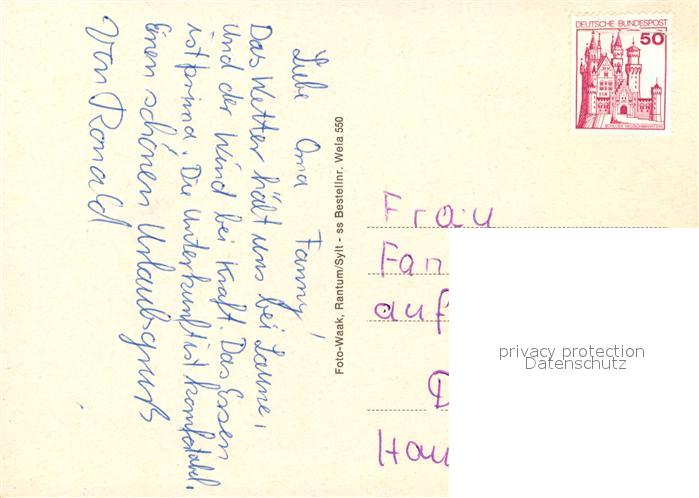 Liebe Oma Fanny!
Das Wetter hält uns bei Laune,
und der Wind bei Kraft. Das Essen
ist prima. Die Unterkunft ist komfortabel.
Einen schönen Urlaubsgruß
Von Ronald
Foto-Waak, Rantum/Sylt - ss Bestellnr. Wela 550
DEUTSCHE BUNDESPOST
50
SCHLOSS NEUSCHWANSTEIN
Frau
Fan
auf
D
Hau
privacy protection
Datenschutz